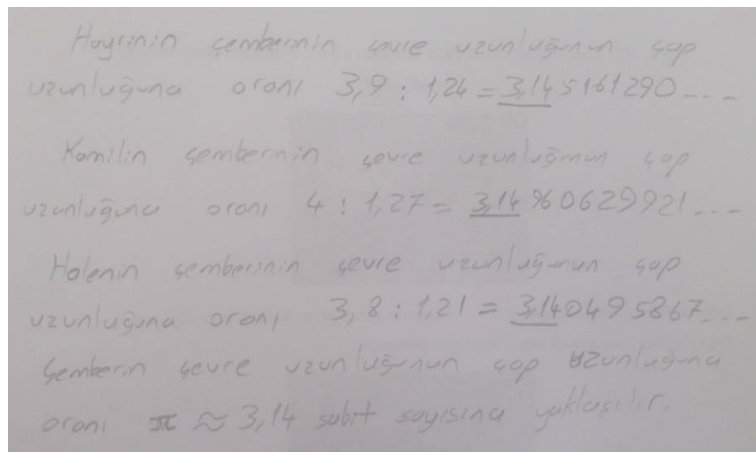 Hayrinin çemberinin çevre uzunluğunun çap
uzunluğuna oranı 3,9 : 1,24 = 3,145161290....
Kamilin çemberinin çevre uzunluğunun çap
uzunluğuna oranı 4 : 1,27 = 3,14960629921...
Halenin çemberinin çevre uzunluğunun çap
uzunluğuna oranı 3,8 : 1,21 = 3,140495867...
Çemberin çevre uzunluğunun çap uzunluğuna
oranı π ≈ 3,14 sabit sayısına yaklaşılır.